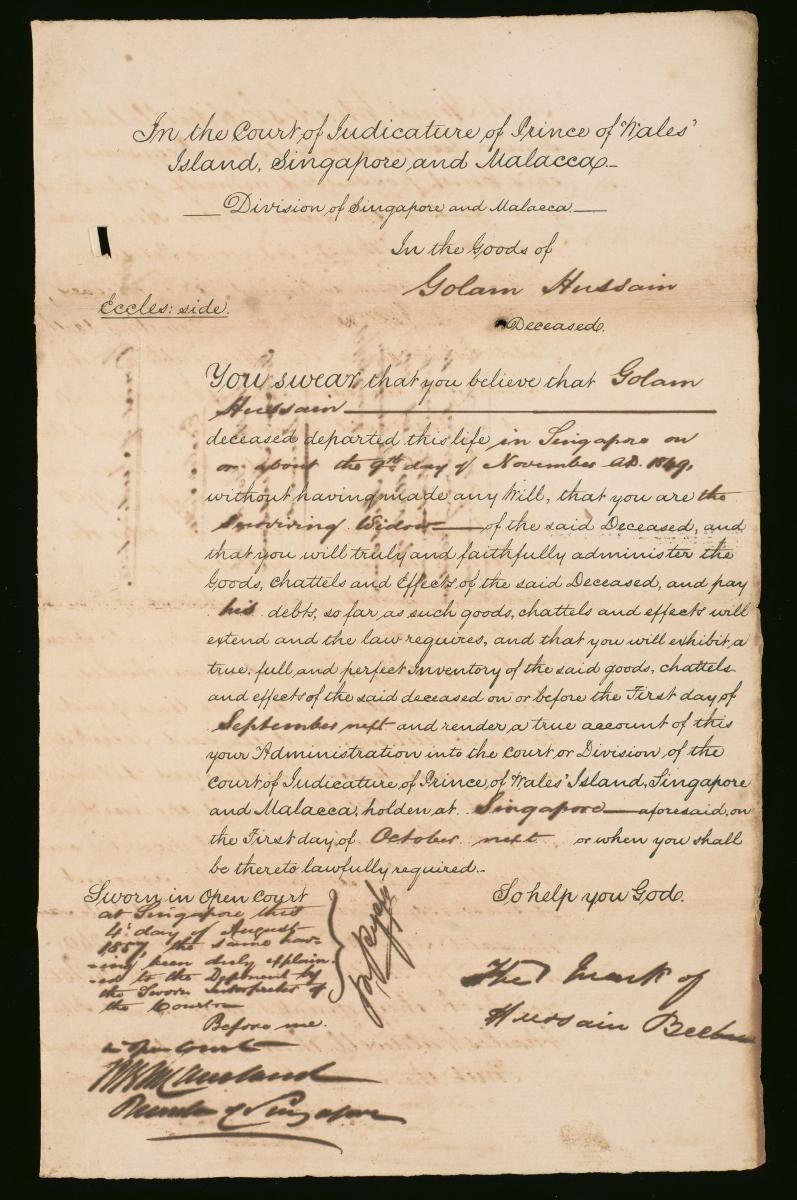 In the Court of Judicature of Prince of Wales'
Island, Singapore and Malacca
Division of Singapore and Malacca
In the Goods of
Golam Hussain
Eccles: side.
Deceased.
You swear that you believe that Golam
Hussain
deceased departed this life in Singapore on
or about the 9th day of November A.D. 1849,
without having made any Will, that you are the
Surviving Widow of the said Deceased, and
that you will truly and faithfully administer the
Goods, chattels and Effects, of the said Deceased, and pay
his debts, so far as such goods, chattels and effects will
extend and the law requires, and that you will exhibit a
true, full and perfect Inventory of the said goods, chattels
and effects of the said deceased on or before the First day of
September next and render a true account of this
your Administration into the court or Division of the
court of Judicature of Prince of Wales' Island, Singapore
and Malacca, holden at Singapore aforesaid, on
the First day of October next or when you shall
be thereto lawfully required.
Sworn in Open Court
at Singapore this
4th day of August
1857, the same hav-
-ing been duly explain-
-ed to the Deponent by
the Sworn Interpreter of
the Court
Before me.
in Open Court
of Singapore
So help you God.
The mark of
Hussain Beebee